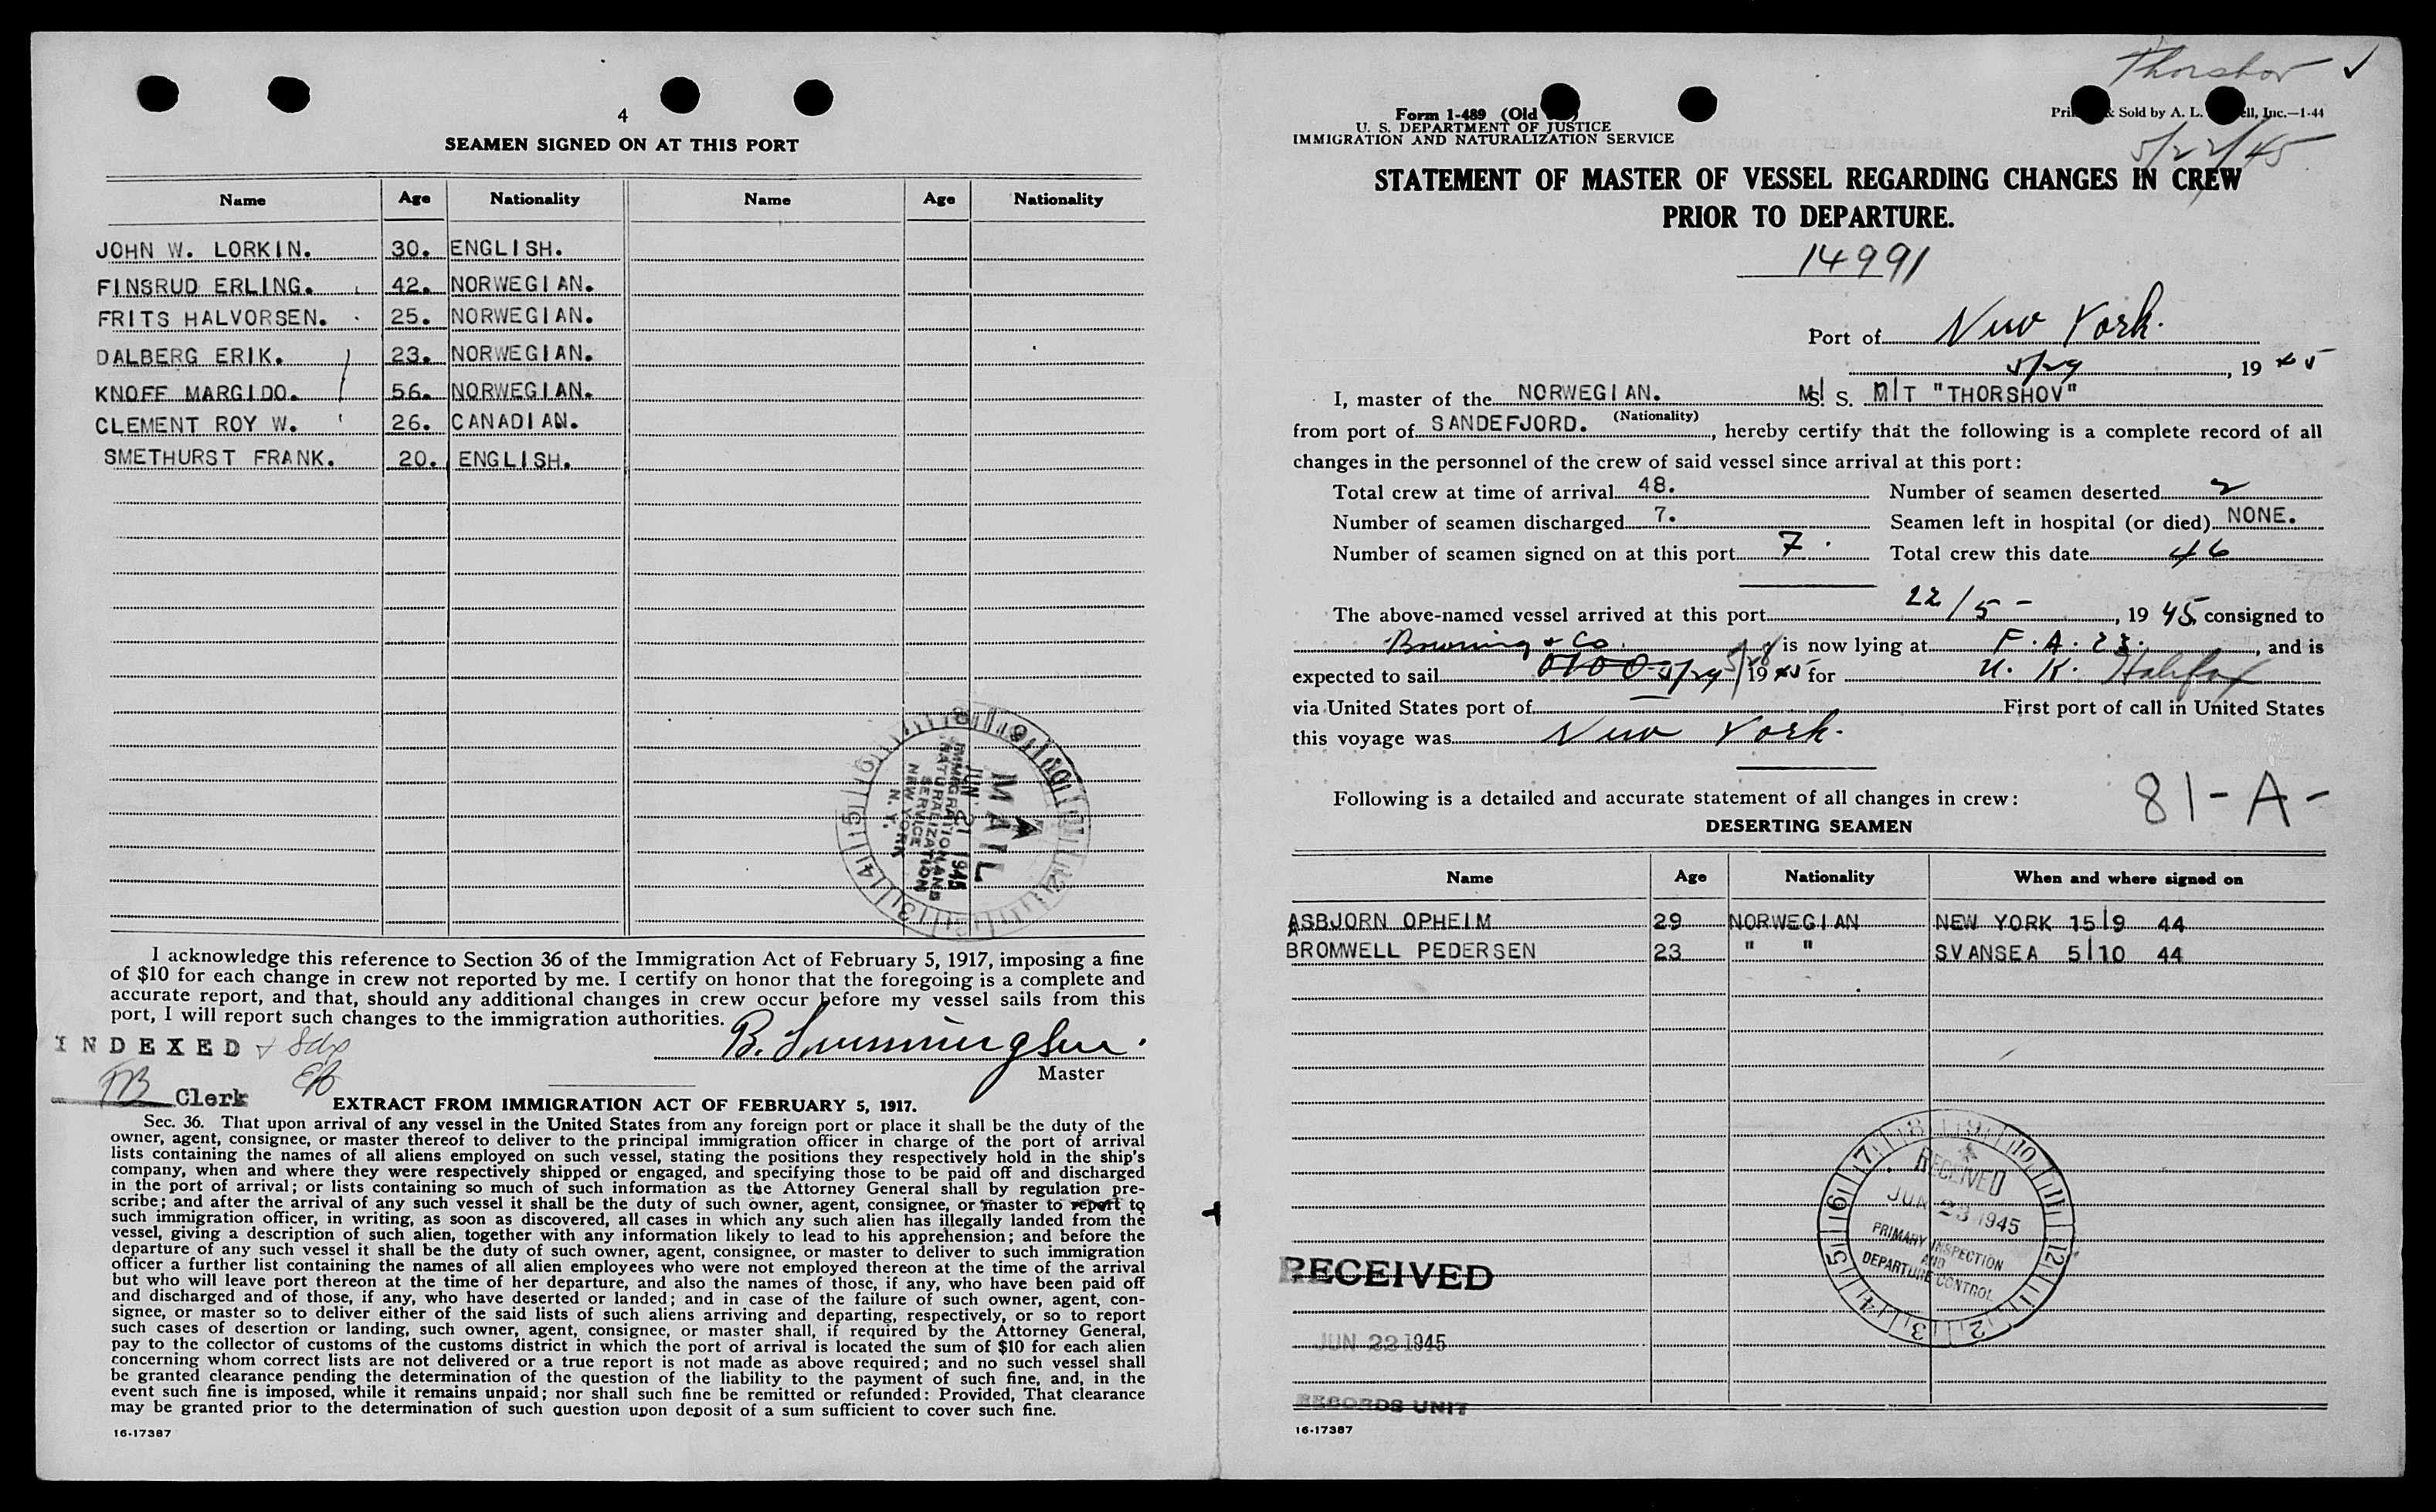 4
SEAMEN SIGNED ON AT THIS PORT
Name Age Nationality Name Age Nationality
JOHN W. LORKIN. 30. ENGLISH.
FINSRUD ERLING. 42. NORWEGIAN.
FRITS HALVORSEN. 25. NORWEGIAN.
DALBERG ERIK. 23. NORWEGIAN.
KNOFF MARGIDO. 56. NORWEGIAN.
CLEMENT ROY W. 26. CANADIAN.
SMETHURST FRANK. 20. ENGLISH.
MAIL
JUN 21 1945
IMMIGRATION AND
NATURALIZATION
SERVICE
NEW YORK
N. Y.
I acknowledge this reference to Section 36 of the Immigration Act of February 5, 1917, imposing a fine
of $10 for each change in crew not reported by me. I certify on honor that the foregoing is a complete and
accurate report, and that, should any additional changes in crew occur before my vessel sails from this
port, I will report such changes to the immigration authorities.
INDEXED
B.
Master
Clerk
EXTRACT FROM IMMIGRATION ACT OF FEBRUARY 5, 1917.
Sec. 36. That upon arrival of any vessel in the United States from any foreign port or place it shall be the duty of the
owner, agent, consignee, or master thereof to deliver to the principal immigration officer in charge of the port of arrival
lists containing the names of all aliens employed on such vessel, stating the positions they respectively hold in the ship's
company, when and where they were respectively shipped or engaged, and specifying those to be paid off and discharged
in the port of arrival; or lists containing so much of such information as the Attorney General shall by regulation pre-
scribe; and after the arrival of any such vessel it shall be the duty of such owner, agent, consignee, or master to report to
such immigration officer, in writing, as soon as discovered, all cases in which any such alien has illegally landed from the
vessel, giving a description of such alien, together with any information likely to lead to his apprehension; and before the
departure of any such vessel it shall be the duty of such owner, agent, consignee, or master to deliver to such immigration
officer a further list containing the names of all alien employees who were not employed thereon at the time of the arrival
but who will leave port thereon at the time of her departure, and also the names of those, if any, who have been paid off
and discharged and of those, if any, who have deserted or landed; and in case of the failure of such owner, agent, con-
signee, or master so to deliver either of the said lists of such aliens arriving and departing, respectively, or so to report
such cases of desertion or landing, such owner, agent, consignee, or master shall, if required by the Attorney General,
pay to the collector of customs of the customs district in which the port of arrival is located the sum of $10 for each alien
concerning whom correct lists are not delivered or a true report is not made as above required; and no such vessel shall
be granted clearance pending the determination of the question of the liability to the payment of such fine, and, in the
event such fine is imposed, while it remains unpaid; nor shall such fine be remitted or refunded: Provided, That clearance
may be granted prior to the determination of such question upon deposit of a sum sufficient to cover such fine.
16-17387
Thorshov ✓
Form 1-489 (Old
U. S. DEPARTMENT OF JUSTICE
IMMIGRATION AND NATURALIZATION SERVICE
Sold by A. L. Inc.—1-44
5/22/45
STATEMENT OF MASTER OF VESSEL REGARDING CHANGES IN CREW
PRIOR TO DEPARTURE.
14991
Port of New York.
5/29, 1945
I, master of the NORWEGIAN. S. M/T "THORSHOV"
(Nationality)
from port of SANDEFJORD., hereby certify that the following is a complete record of all
changes in the personnel of the crew of said vessel since arrival at this port:
Total crew at time of arrival 48. Number of seamen deserted 2
Number of seamen discharged 7. Seamen left in hospital (or died) NONE.
Number of seamen signed on at this port 7. Total crew this date 46
The above-named vessel arrived at this port 22/5-, 1945, consigned to
Browning & Co. is now lying at F.A. 23., and is
expected to sail 0100 5/29 1945 for U. K. Halifax
via United States port of — First port of call in United States
this voyage was New York.
Following is a detailed and accurate statement of all changes in crew: 81-A-
DESERTING SEAMEN
Name Age Nationality When and where signed on
ASBJORN OPHEIM 29 NORWEGIAN NEW YORK 15/9 44
BROMWELL PEDERSEN 23 " " SVANSEA 5/10 44
RECEIVED
JUN 23 1945
PRIMARY INSPECTION
AND
DEPARTURE CONTROL
RECEIVED
JUN 22 1945
RECORDS UNIT
16-17387